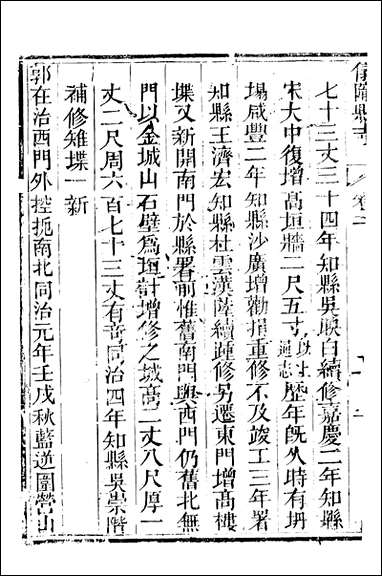 儀隴縣志 卷二
七十三丈三十四年知縣吳映白續修嘉慶二年知縣
宋大中復增高垣牆二尺五寸以上通志歷年旣久時有坍
塌咸豐二年知縣沙廣增勸捐重修不及竣工三年署
知縣王濟宏知縣杜雲漢陸續踵修另遷東門增高樓
堞又新開南門於縣署前惟舊南門與西門仍舊北無
門以金城山石壁爲垣計增修之城高二丈八尺厚一
丈二尺周六百七十三丈有奇同治四年知縣吳崇階
補修雉堞一新
郭在治西門外控扼南北同治元年壬戌秋藍逆圍營山